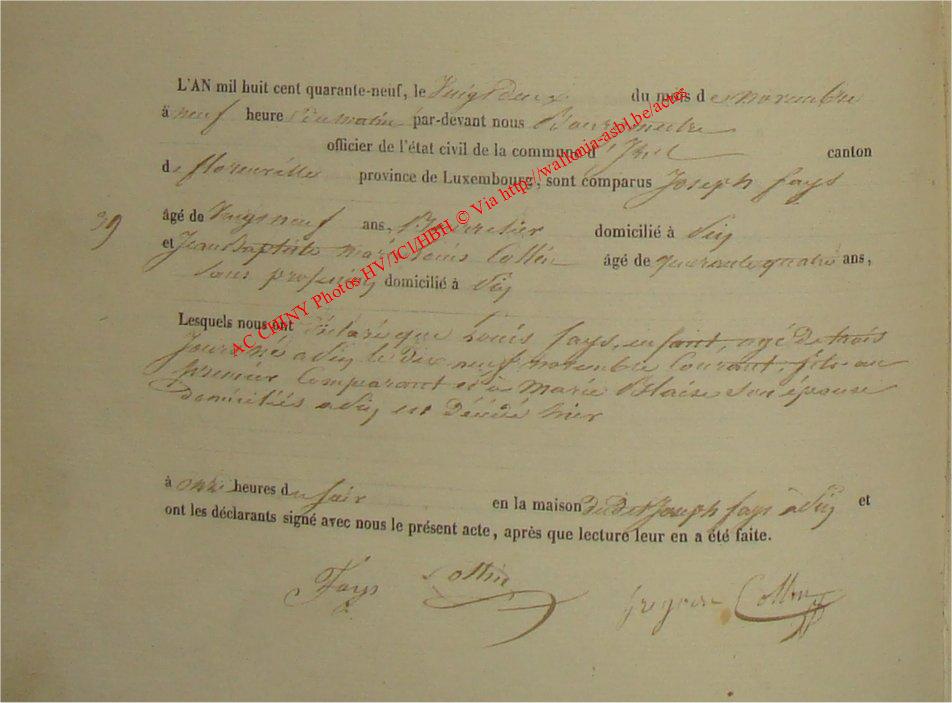 L'AN mil huit cent quarante-neuf, le Vingt deux du mois de novembre
à neuf heure du matin par-devant nous Bourgmestre
officier de l'état civil de la commune d' Izel canton
de florenville province de Luxembourg, sont comparus Joseph fays
39
âgé de Vingt neuf ans, domicilié à
et Jean Baptiste marie Louis Collin âgé de quarante quatre ans,
Sans profession domicilié à
Lesquels nous ont déclaré que Louis fays, enfant, agé de trois
Jours né a le dix neuf novembre Courant, fils au
premier Comparant et à Marie Blaise Son épouse
domiciliés a est Décédé hier
à onze heures du soir en la maison dudit Joseph fays à et
ont les déclarants signé avec nous le présent acte, après que lecture leur en a été faite.
Fays Collin Gregoire Collin
AC CHINY Photos HV/JCl/HBH © Via http://wallonia-asbl.be/actes